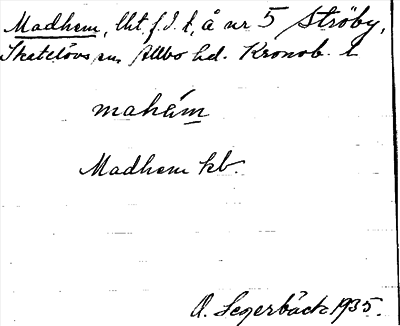 Madhem, lht. f.d. t, å nr 5 Ströby,
Skatelövs sn Allbo hd. Kronob. l
mahém
Madhem kb.
O. Segerbäck 1935.